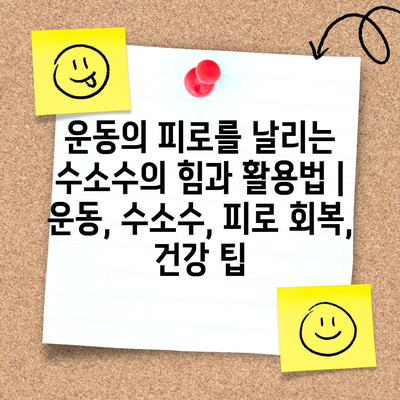 운동의 피로를 날리는
수소수의 힘과 활용법 |
운동, 수소수, 피로 회복,
건강 팁